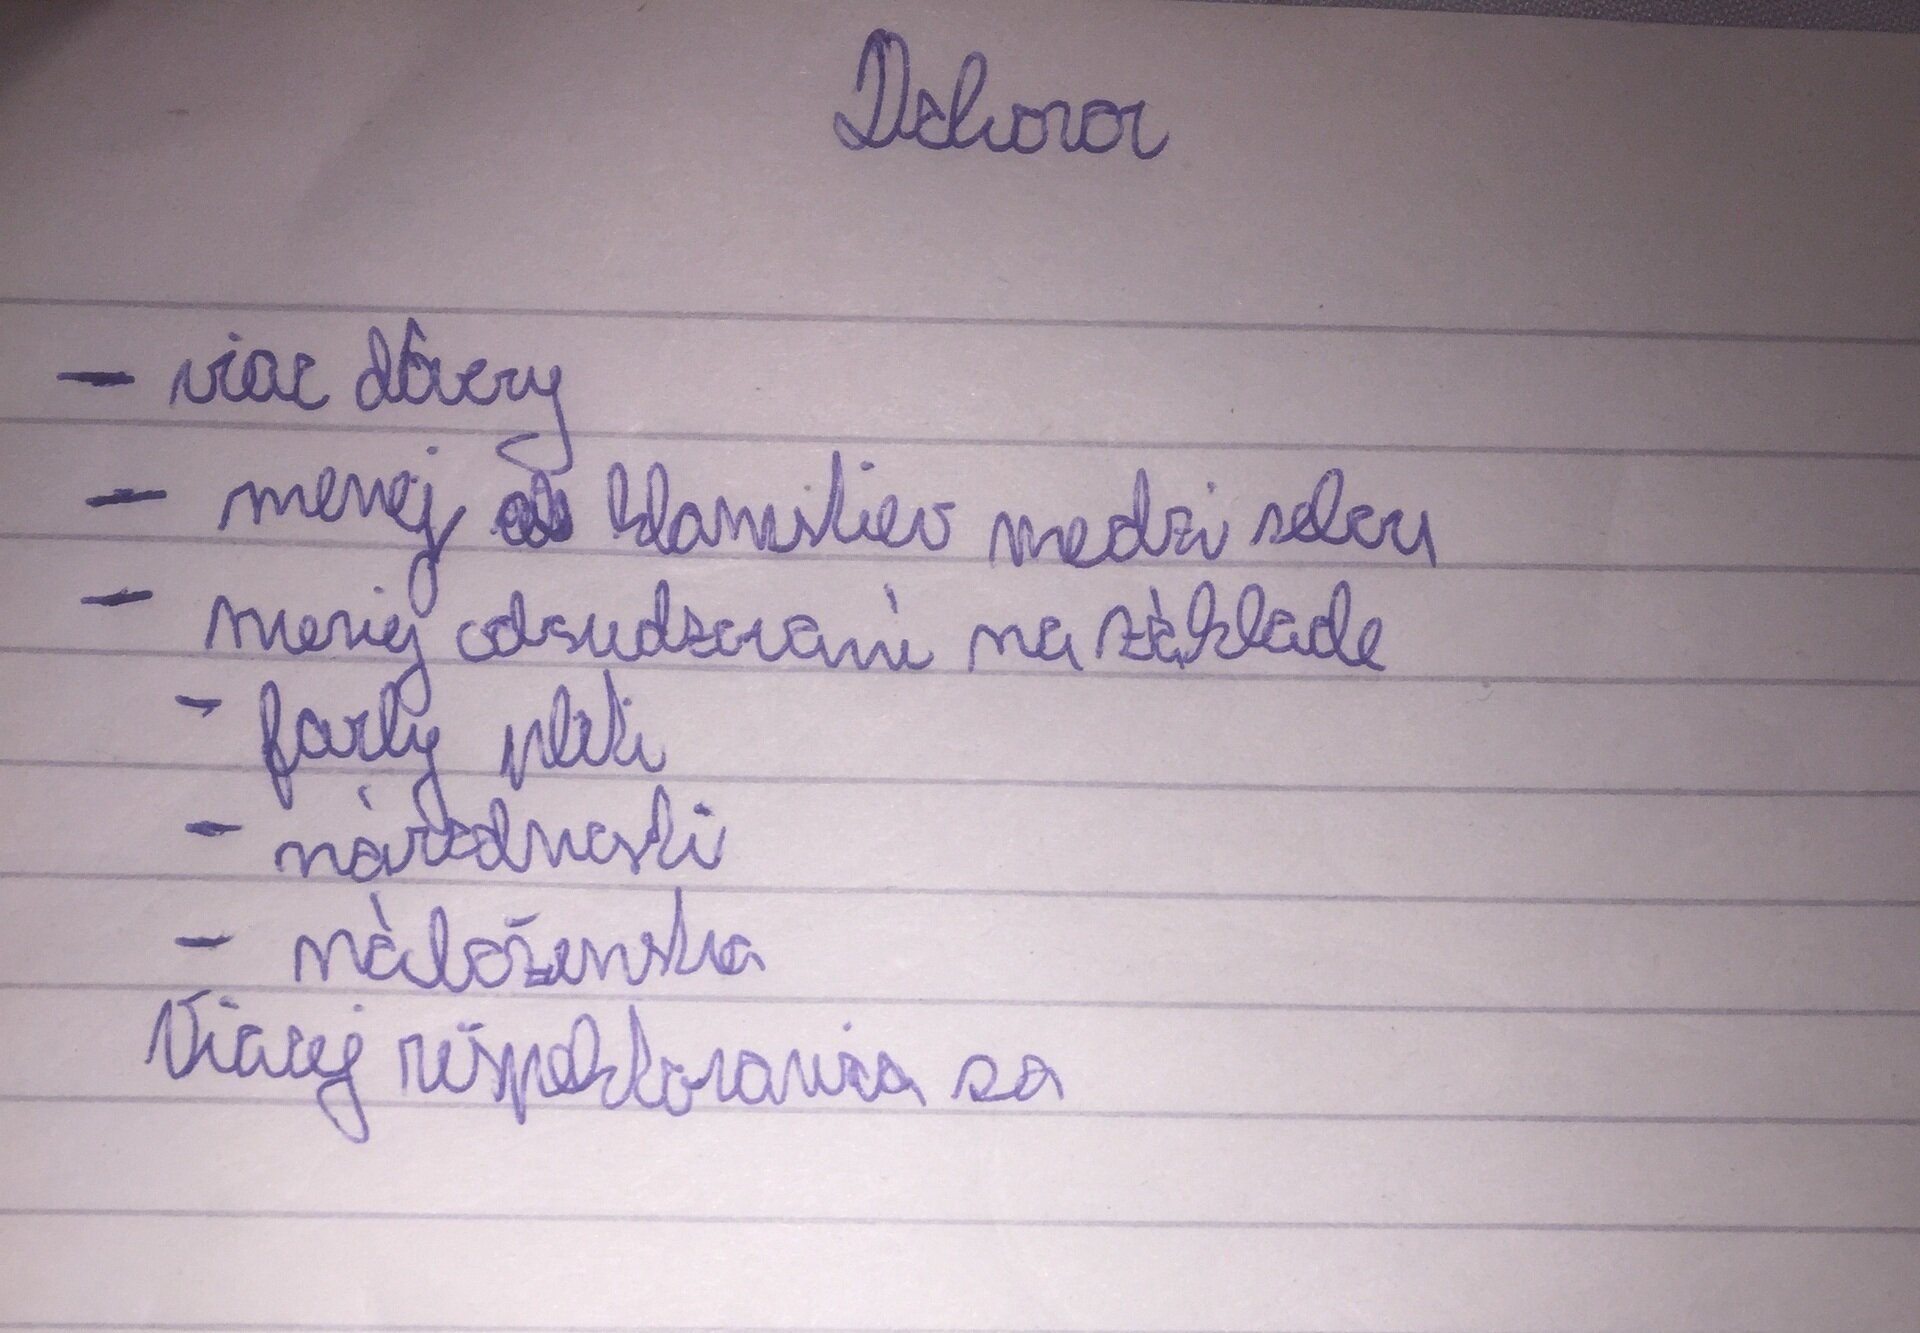 Dohovor
- viac dôvery
- menej klamstiev medzi sebou
- menej odsudzovaní na základe
- farby pleti
- národnosti
- náboženstva
Viacej rešpektovania sa